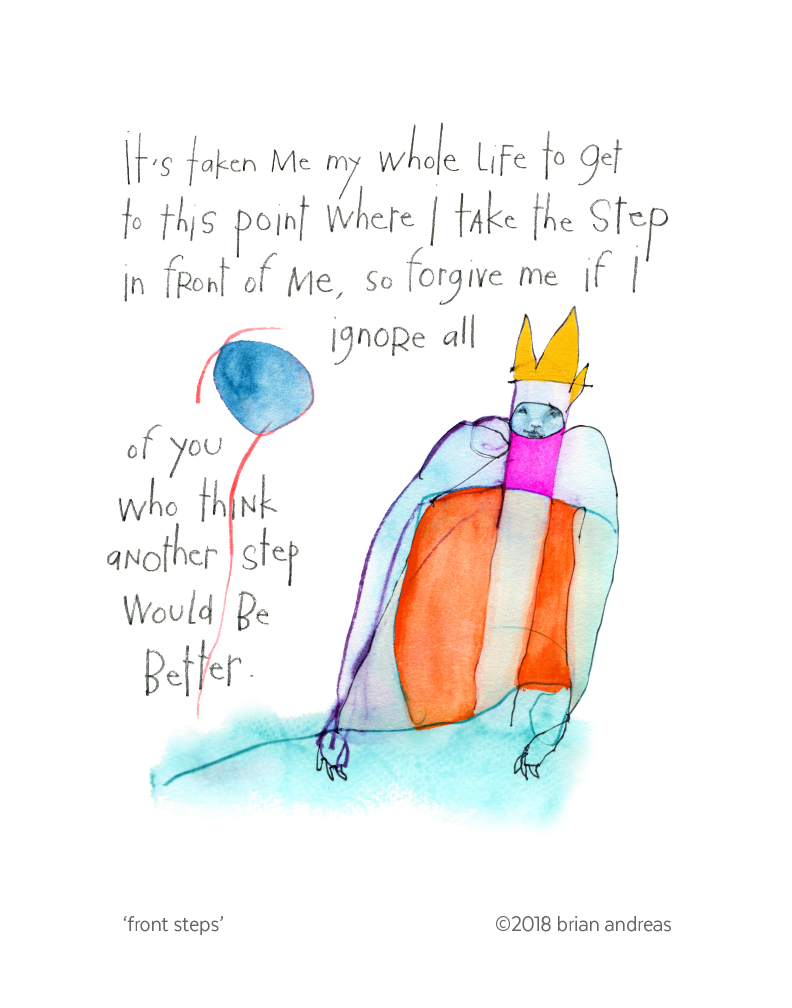 It's taken me my whole life to get
to this point where I take the step
in front of me, so forgive me if I
ignore all
of you
who think
another step
would be
better.
'front steps'
©2018 brian andreas